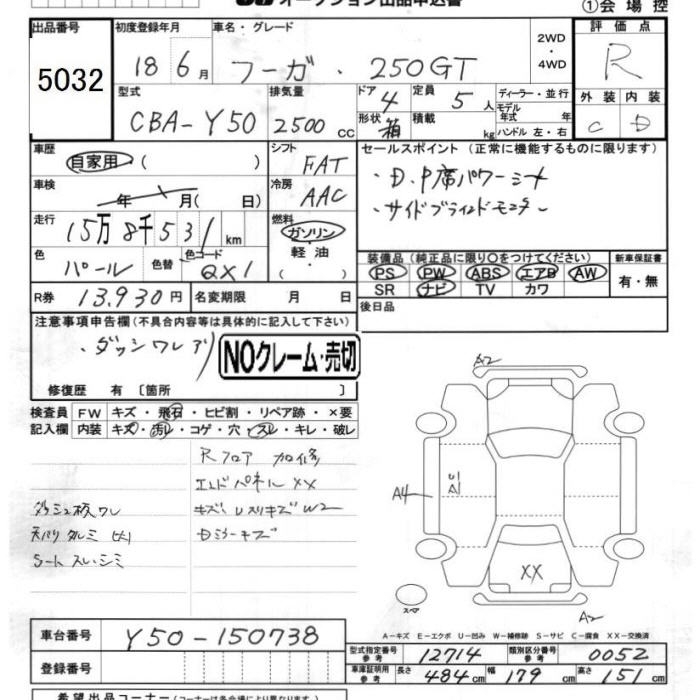 オークション出品申込書
①会場控
出品番号 初度登録年月 車名・グレード 2WD ・ 4WD 評価点
5032 18 6月 フーガ・250GT R
型式 排気量 ドア 定員 ディーラー・並行 外装 内装
CBA-Y50 2500cc 4 5人 モデル年式 年 C D
形状 箱 積載 kg ハンドル 左・右
車歴 シフト セールスポイント (正常に機能するものに限ります)
自家用 ( ) FAT ・D.P席パワーシート
車検 年 月( 日) 冷房 AAC ・サイドブラインドモニター
走行 15万8千531km 燃料 ガソリン・軽油・( )
色 パール 色替 色コード QX1
装備品 (純正品に限り○をつけてください) 新車保証書
PS PW ABS エアB AW 有・無
SR ナビ TV カワ
R券 13,930円 名変期限 月 日 後日品
注意事項申告欄 (不具合内容等は具体的に記入して下さい)
・ダッシワレアリ
NOクレーム・売切
修復歴 有 〔箇所 〕
検査員 FW キズ・飛石・ヒビ割・リペア跡・×要
記入欄 内装 キズ・汚レ・コゲ・穴・スレ・キレ・破レ
Rフロア 加修
エンドパネルXX
ダッシュ板ワレ
A2
A4
A1
XX
A2
スペア
A-キズ E-エクボ U-凹み W-補修跡 S-サビ C-腐食 XX-交換済
車台番号 Y50-150738
型式指定番号 参考 12714 類別区分番号 参考 0052
登録番号 車庫証明用 参考 長さ 484cm 幅 179cm 高さ 151cm
希望出品コーナー (コーナーは各会場により異なります)